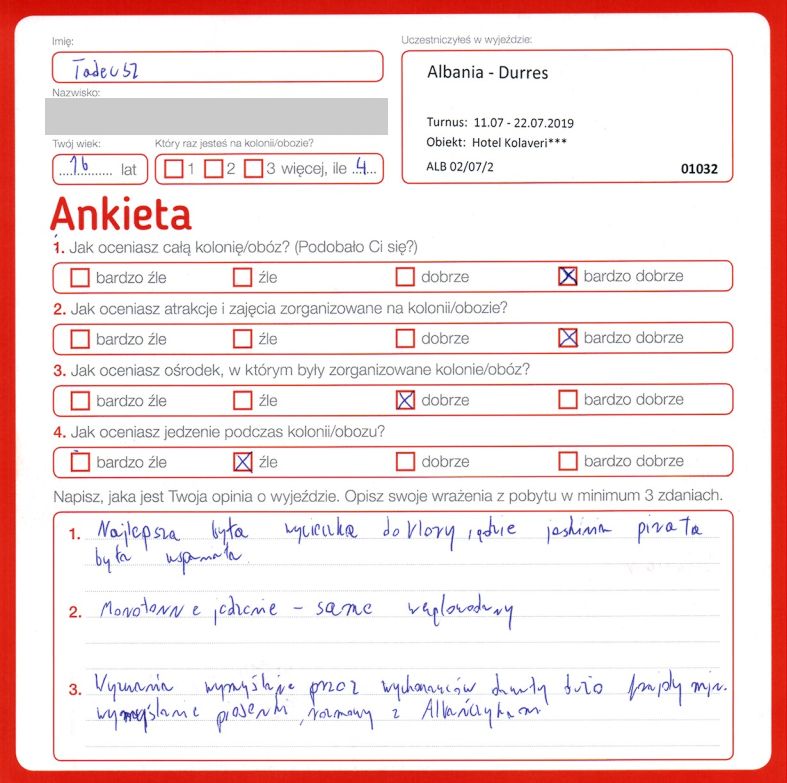 Imię:
Uczestniczyłeś w wyjeździe:
Tadeusz
Albania - Durres
Nazwisko:
Turnus: 11.07 - 22.07.2019
Obiekt: Hotel Kolaveri***
Twój wiek:
Który raz jesteś na kolonii/obozie?
16 lat
1 2 3 więcej, ile 4
ALB 02/07/2
01032
Ankieta
1. Jak oceniasz całą kolonię/obóz? (Podobało Ci się?)
bardzo źle źle dobrze bardzo dobrze
2. Jak oceniasz atrakcje i zajęcia zorganizowane na kolonii/obozie?
bardzo źle źle dobrze bardzo dobrze
3. Jak oceniasz ośrodek, w którym były zorganizowane kolonie/obóz?
bardzo źle źle dobrze bardzo dobrze
4. Jak oceniasz jedzenie podczas kolonii/obozu?
bardzo źle źle dobrze bardzo dobrze
Napisz, jaka jest Twoja opinia o wyjeździe. Opisz swoje wrażenia z pobytu w minimum 3 zdaniach.
1. Najlepsza była wycieczka do Vlory, gdzie jaskinia pirata
była wspaniała.
2. Monotonne jedzenie - same węglowodany
3. Wyzwania wymyślane przez wychowawców dawały dużo frajdy mjn.
wymyślanie piosenki, rozmowy z Albańczykami